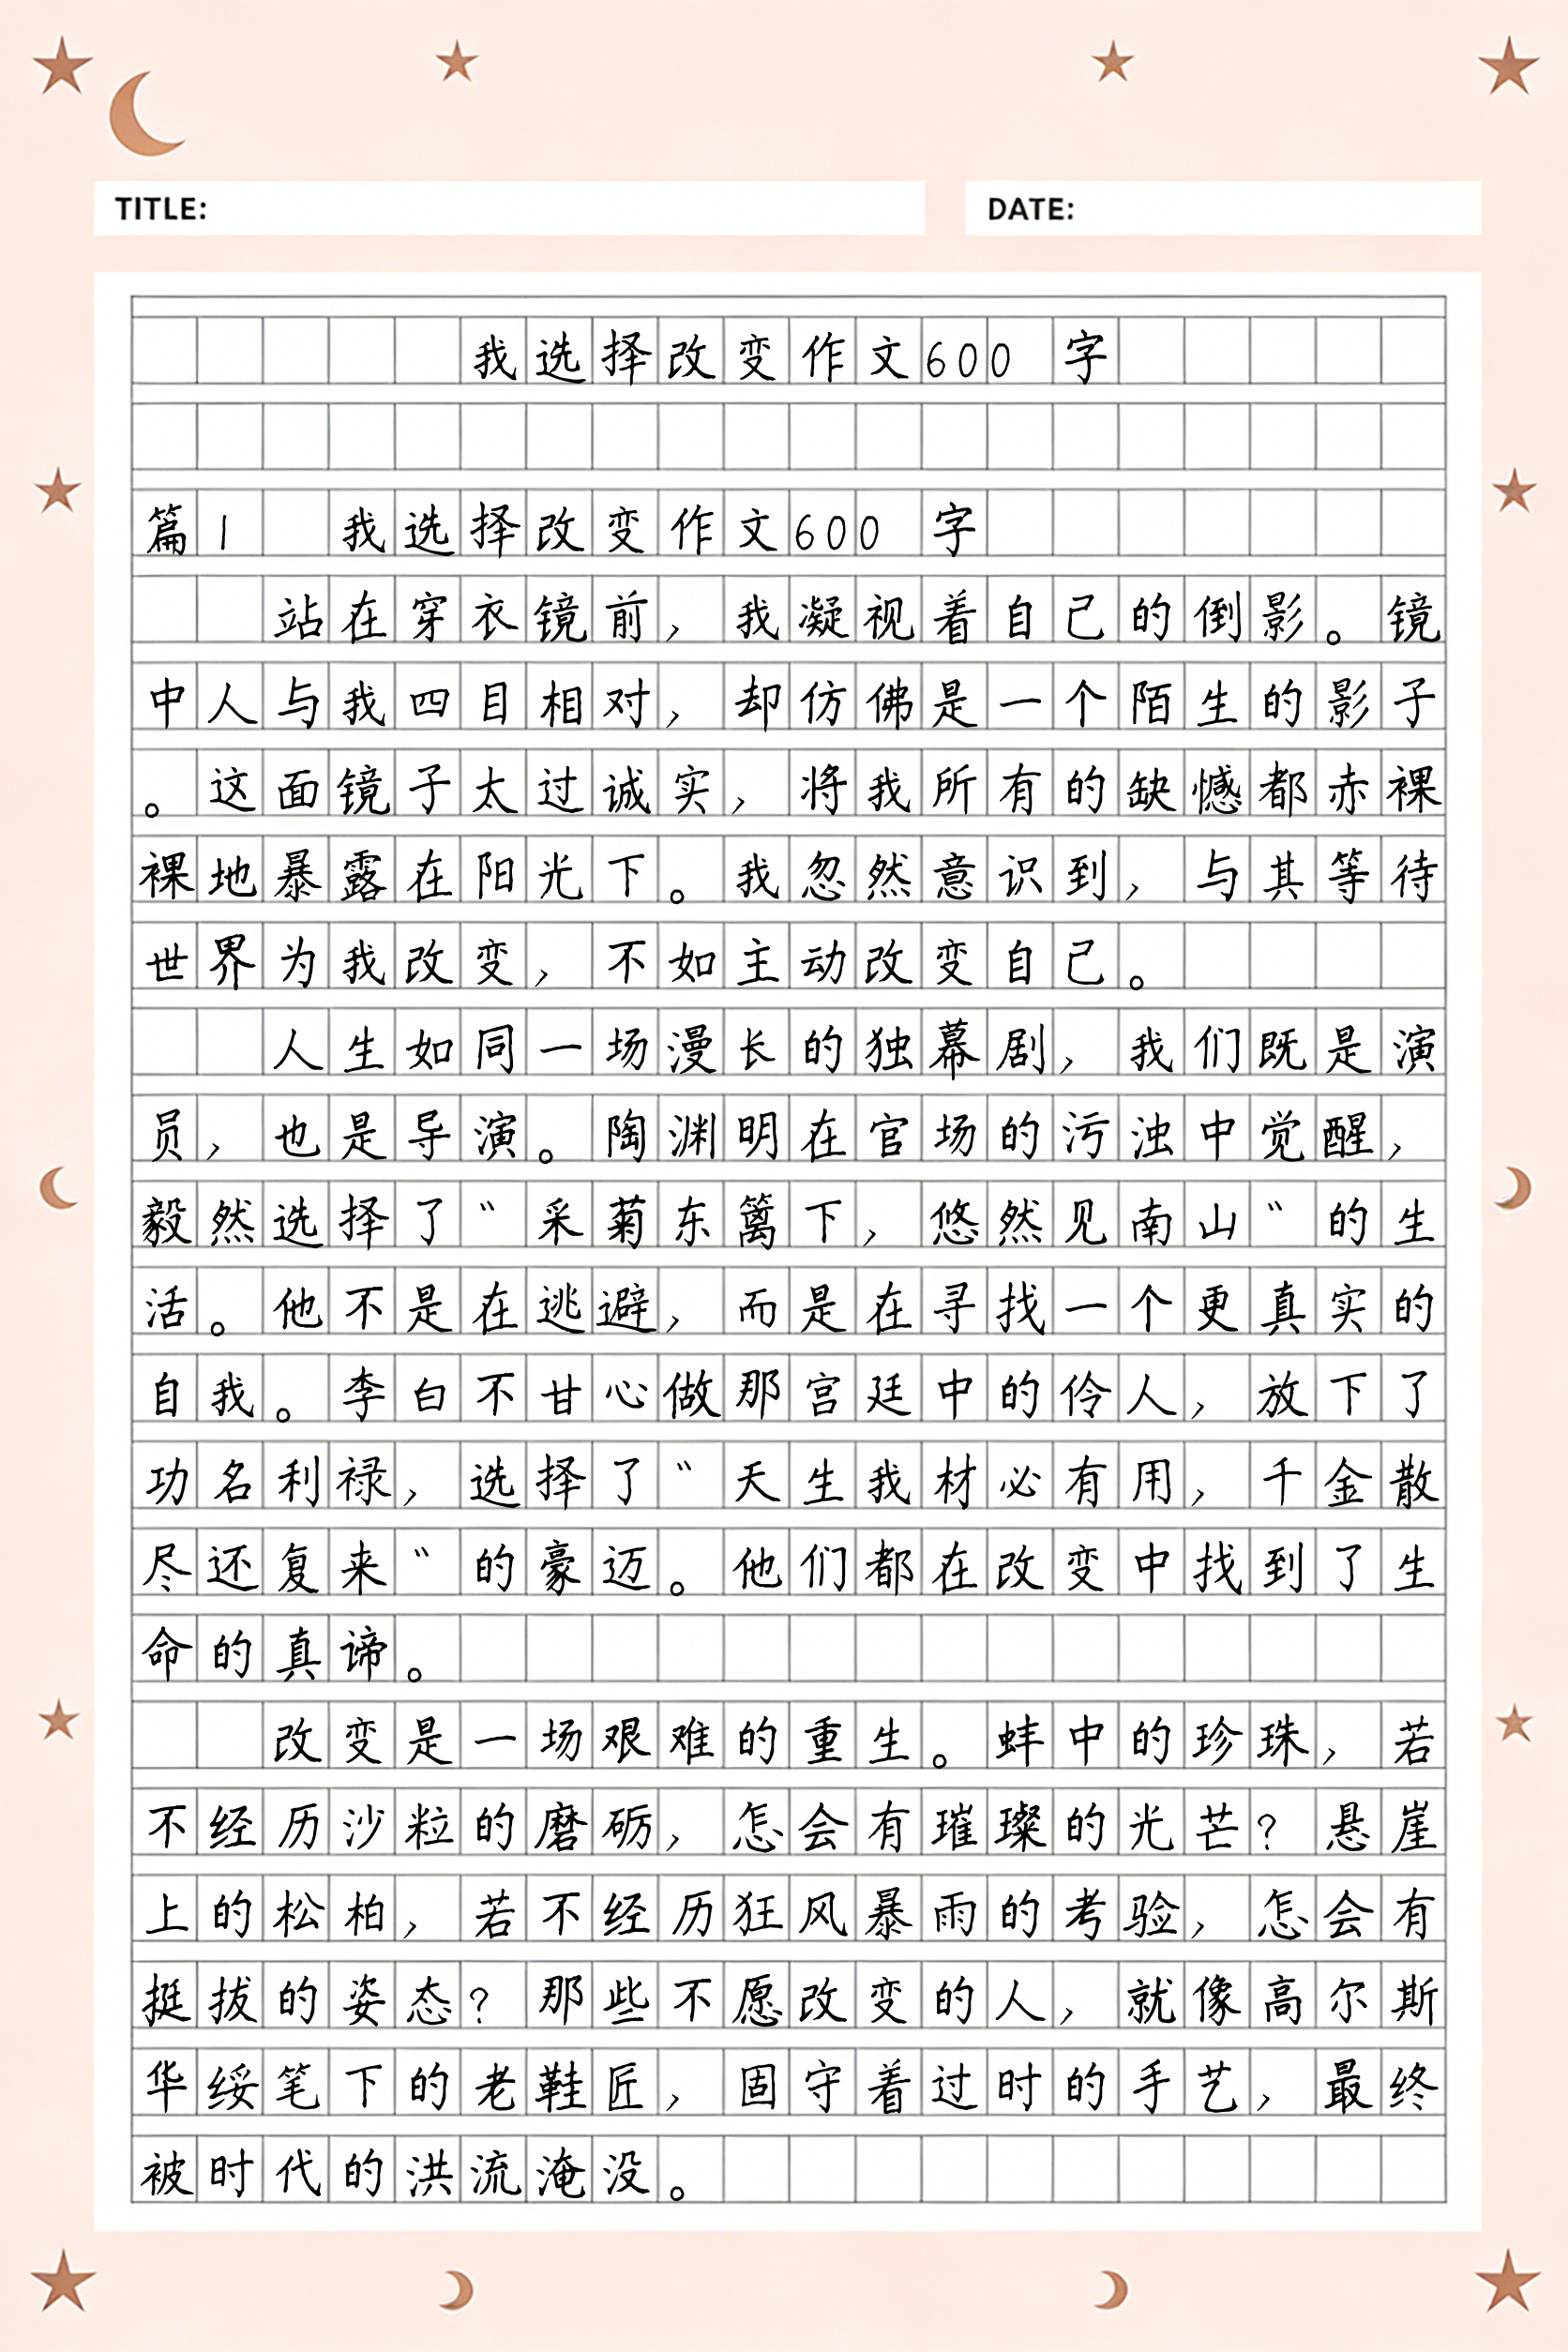 TITLE:
DATE:
我选择改变作文600 字
篇1 我选择改变作文600 字
站在穿衣镜前，我凝视着自己的倒影。镜
中人与我四目相对，却仿佛是一个陌生的影子
。这面镜子太过诚实，将我所有的缺憾都赤裸
裸地暴露在阳光下。我忽然意识到，与其等待
世界为我改变，不如主动改变自己。
人生如同一场漫长的独幕剧，我们既是演
员，也是导演。陶渊明在官场的污浊中觉醒，
毅然选择了"采菊东篱下，悠然见南山"的生
活。他不是在逃避，而是在寻找一个更真实的
自我。李白不甘心做那宫廷中的伶人，放下了
功名利禄，选择了"天生我材必有用，千金散
尽还复来"的豪迈。他们都在改变中找到了生
命的真谛。
改变是一场艰难的重生。蚌中的珍珠，若
不经历沙粒的磨砺，怎会有璀璨的光芒？悬崖
上的松柏，若不经历狂风暴雨的考验，怎会有
挺拔的姿态？那些不愿改变的人，就像高尔斯
华绥笔下的老鞋匠，固守着过时的手艺，最终
被时代的洪流淹没。